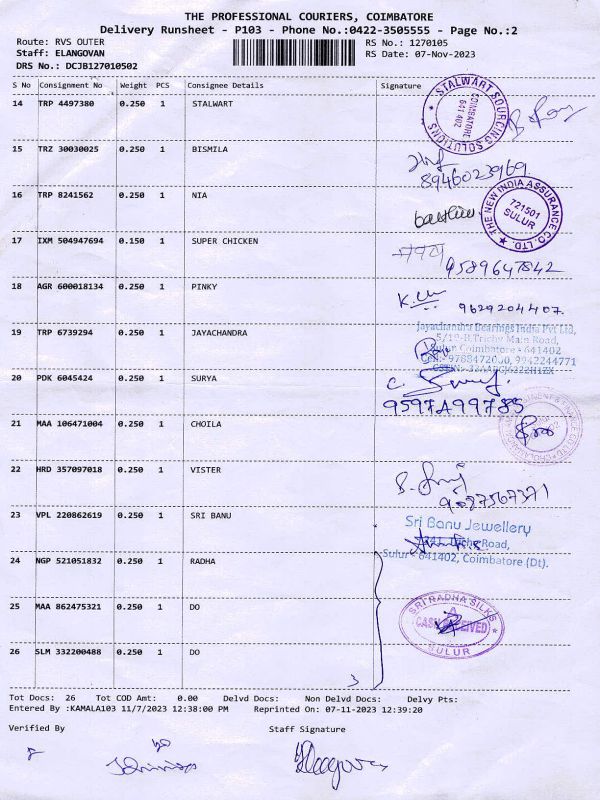 THE PROFESSIONAL COURIERS, COIMBATORE
Delivery Runsheet - P103 - Phone No.:0422-3505555 - Page No.:2
Route: RVS OUTER RS No.: 1270105
Staff: ELANGOVAN RS Date: 07-Nov-2023
DRS No.: DCJB127010502
S No Consignment No Weight PCS Consignee Details Signature
14 TRP 4497380 0.250 1 STALWART
STALWART SOURCING SOLUTIONS
COIMBATORE
641 402
15 TRZ 30030025 0.250 1 BISMILA
8946023969.
16 TRP 8241562 0.250 1 NIA
THE NEW INDIA ASSURANCE CO. LTD.
721501
SULUR
17 IXM 504947694 0.150 1 SUPER CHICKEN
9589647842
18 AGR 600018134 0.250 1 PINKY
9629204407.
19 TRP 6739294 0.250 1 JAYACHANDRA
Jayachandra Bearings India Pvt Ltd,
Trichy Main Road,
Sulur Coimbatore - 641402
20 PDK 6045424 0.250 1 SURYA
21 MAA 106471004 0.250 1 CHOILA
22 HRD 357097018 0.250 1 VISTER
23 VPL 220862619 0.250 1 SRI BANU
Sri Banu Jewellery
Road,
Sulur - 641402, Coimbatore (Dt).
24 NGP 521051832 0.250 1 RADHA
25 MAA 862475321 0.250 1 DO
SRI RADHA SILKS
SULUR
26 SLM 332200488 0.250 1 DO
3
Tot Docs: 26 Tot COD Amt: 0.00 Delvd Docs: Non Delvd Docs: Delvy Pts:
Entered By :KAMALA103 11/7/2023 12:38:00 PM Reprinted On: 07-11-2023 12:39:20
Verified By Staff Signature